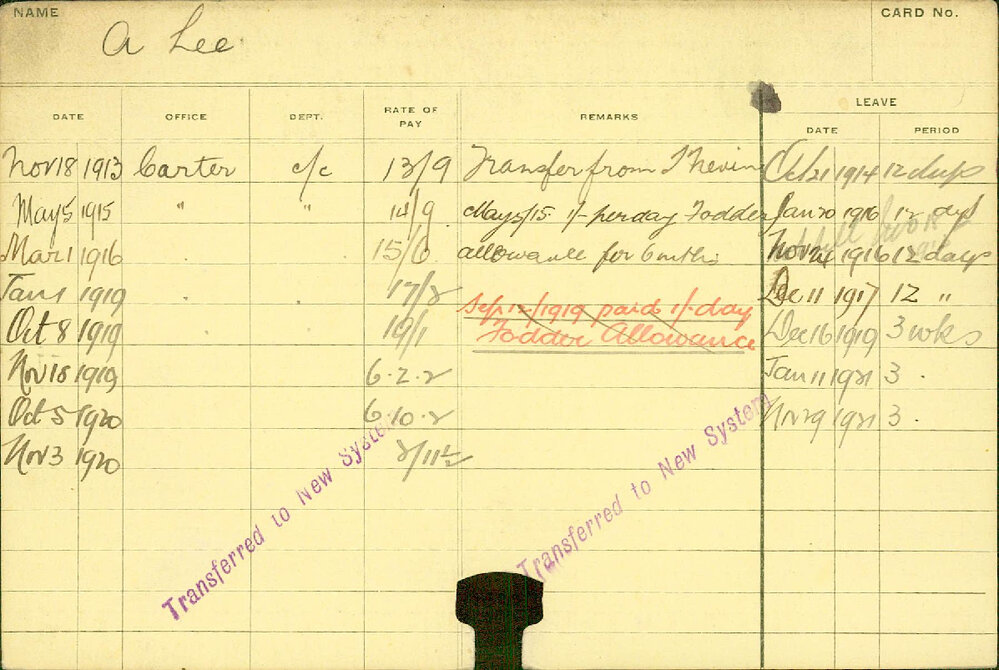 NAME
A Lee
CARD No.
DATE OFFICE DEPT. RATE OF PAY REMARKS LEAVE
DATE PERIOD
Nov 18 1913 Carter c/c 13/9 Transfer from J Nevin Oct 21 1914 12 days
May 5 1915 " " 14/9 May 5/15 1/- per day Fodder Jan 20 1916 12 days
Mar 1 1916 15/6 allowance for 6 mths Nov 24 1916 12 days
Jan 1 1919 17/2 Dec 11 1917 12 "
Sep 12/1919 paid 1/- day
Oct 8 1919 19/1 Fodder Allowance Dec 16 1919 3 wks
Nov 18 1919 6.2.2 Jan 11 1921 3 .
Oct 5 1920 6.10.2 Nov 29 1921 3 .
Nov 3 1920 2/11½
Transferred to New System
Transferred to New System